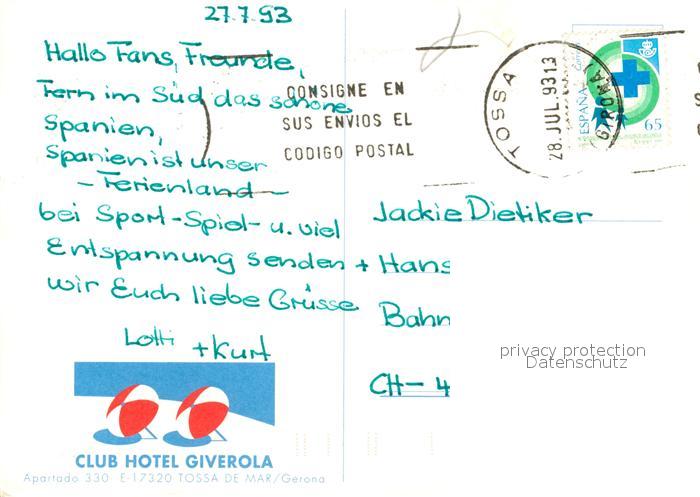 27.7.93
Hallo Fans, Freunde,
Fern im Süd das schöne
Spanien,
Spanien ist unser
- Ferienland -
bei Sport-Spiel- u. viel
Entspannung senden
wir Euch liebe Grüsse
Lotti + Kurt
CLUB HOTEL GIVEROLA
Apartado 330 E-17320 TOSSA DE MAR/Gerona
CONSIGNE EN
SUS ENVIOS EL
CODIGO POSTAL
TOSSA
28.JUL.93 13
GIRONA
ESPAÑA
Correos
65
Jackie Dietiker
+ Hans
Bahn
CH- 4
privacy protection
Datenschutz